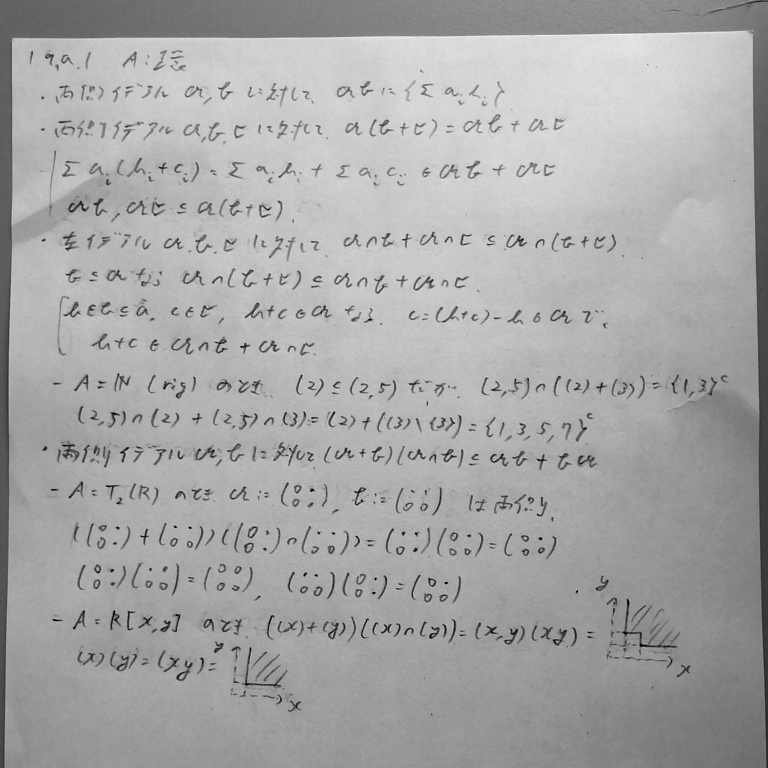 19.a.1 A:環
・両側イデアル 𝔞,𝔟 に対して 𝔞𝔟 = {Σ aᵢbᵢ}
・両側イデアル 𝔞,𝔟,𝔠 に対して 𝔞(𝔟+𝔠) = 𝔞𝔟 + 𝔞𝔠
Σ aᵢ(bᵢ+cᵢ) = Σ aᵢbᵢ + Σ aᵢcᵢ ∈ 𝔞𝔟 + 𝔞𝔠
𝔞𝔟, 𝔞𝔠 ⊆ 𝔞(𝔟+𝔠).
・左イデアル 𝔞,𝔟,𝔠 に対して 𝔞∩𝔟 + 𝔞∩𝔠 ⊆ 𝔞∩(𝔟+𝔠).
𝔟 ⊆ 𝔞 なら 𝔞∩(𝔟+𝔠) ⊆ 𝔞∩𝔟 + 𝔞∩𝔠.
b∈𝔟⊆𝔞, c∈𝔠, b+c∈𝔞 なら c=(b+c)-b∈𝔞 で,
b+c ∈ 𝔞∩𝔟 + 𝔞∩𝔠.
- A=ℕ (rig) のとき (2) ⊆ (2,5) だが (2,5)∩((2)+(3)) = {1,3}ᶜ
(2,5)∩(2) + (2,5)∩(3) = (2)+((3)\{3}) = {1,3,5,7}ᶜ
・両側イデアル 𝔞,𝔟 に対して (𝔞+𝔟)(𝔞∩𝔟) ⊆ 𝔞𝔟 + 𝔟𝔞
- A=T₂(ℝ) のとき 𝔞 := (0 · / 0 ·), 𝔟 := (· · / 0 0) は両側,
((0 · / 0 ·) + (· · / 0 0))((0 · / 0 ·) ∩ (· · / 0 0)) = (· · / 0 ·)(0 · / 0 0) = (0 · / 0 0)
(0 · / 0 ·)(· · / 0 0) = (0 0 / 0 0), (· · / 0 0)(0 · / 0 ·) = (0 · / 0 0)
- A=ℝ[x,y] のとき ((x)+(y))((x)∩(y)) = (x,y)(xy) = y x
(x)(y) = (xy) = y x